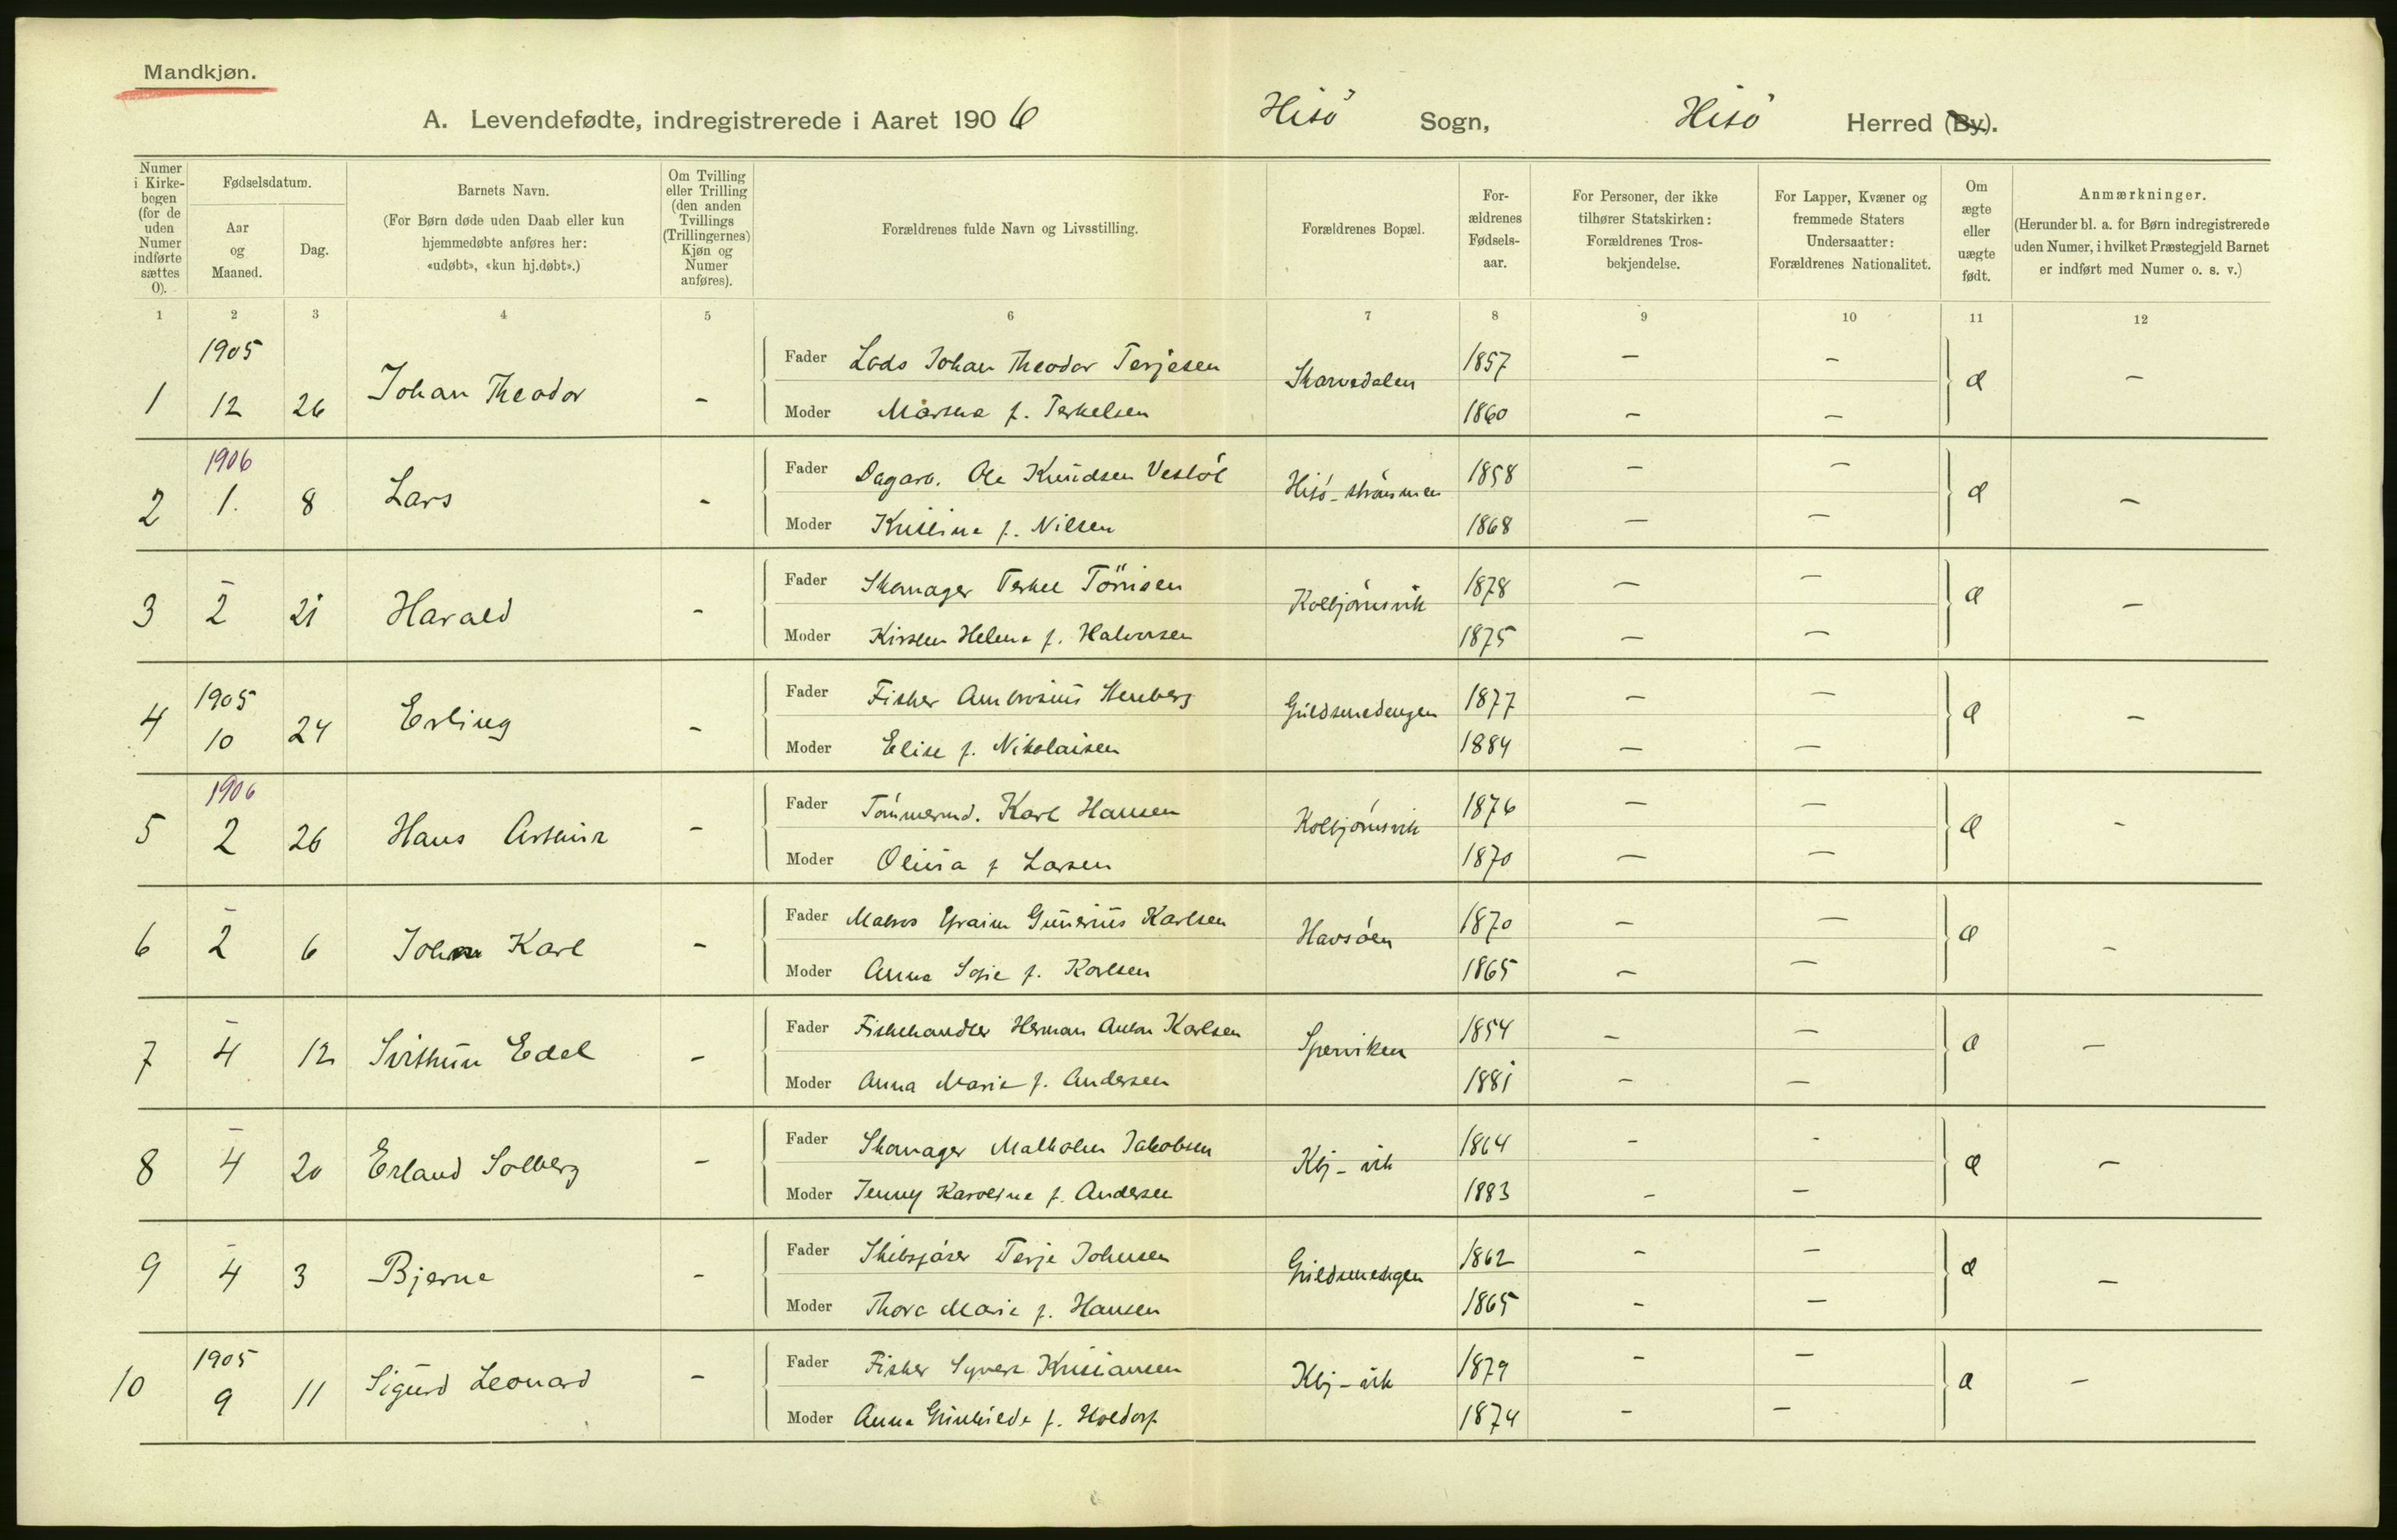 Mandkjøn.
A. Levendefødte, indregistrerede i Aaret 1906 Hisö Sogn, Hisö Herred (By).
Numer i Kirkebogen (for de uden Numer indførte sættes 0).
Fødselsdatum.
Aar og Maaned.
Dag.
Barnets Navn.
(For Børn døde uden Daab eller kun hjemmedøbte anføres her: «udøbt», «kun hj.døbt».)
Om Tvilling eller Trilling (den anden Tvillings (Trillingernes) Kjøn og Numer anføres).
Forældrenes fulde Navn og Livsstilling.
Forældrenes Bopæl.
Forældrenes Fødselsaar.
For Personer, der ikke tilhører Statskirken: Forældrenes Trosbekjendelse.
For Lapper, Kvæner og fremmede Staters Undersaatter: Forældrenes Nationalitet.
Om ægte eller uægte født.
Anmærkninger.
(Herunder bl. a. for Børn indregistrerede uden Numer, i hvilket Præstegjeld Barnet er indført med Numer o. s. v.)
1 2 3 4 5 6 7 8 9 10 11 12
1905
1 12 26 Johan Theodor - Fader Lods Johan Theodor Terjesen Skarvedalen 1857 - - æ -
Moder Marthe f. Terkelsen 1860 - -
1906
2 1. 8 Lars - Fader Dagarb. Ole Knudsen Vestöl Hisö-strömmen 1858 - - æ -
Moder Kristine f. Nilsen 1868 - -
3 - 2 21 Harald - Fader Skomager Terkel Tönnisen Kolbjörnsvik 1878 - - æ -
Moder Kirsten Helene f. Halvorsen 1875 - -
1905
4 10 24 Erling - Fader Fisker Ambrosius Stenberg Guldsmedengen 1877 - - æ -
Moder Elise f. Nikolaisen 1884 - -
1906
5 2 26 Hans Arthur - Fader Tömmermd. Karl Hansen Kolbjörnsvik 1876 - - æ -
Moder Olivia f Larsen 1870 - -
6 - 2 6 John Karl - Fader Matros Efraim Gunerius Karlsen Havsöen 1870 - - æ -
Moder Anna Sofie f. Karlsen 1865 - -
7 - 4 12 Svithun Edel - Fader Fiskehandler Herman Anton Karlsen Spervikен 1854 - - æ -
Moder Anna Marie f. Andersen 1881 - -
8 - 4 20 Erland Solberg - Fader Skomager Malkolm Jakobsen Kbj-vik 1864 - - æ -
Moder Jenny Karoline f. Andersen 1883 - -
9 - 4 3 Bjarne - Fader Skibsförer Terje Johnsen Guldsmedngen 1862 - - æ -
Moder Thora Marie f. Hansen 1865 - -
1905
10 9 11 Sigurd Leonard - Fader Fisker Syvert Kristiansen Kbj-vik 1879 - - æ -
Moder Anna Gunhilde f. Holdorf 1874 - -